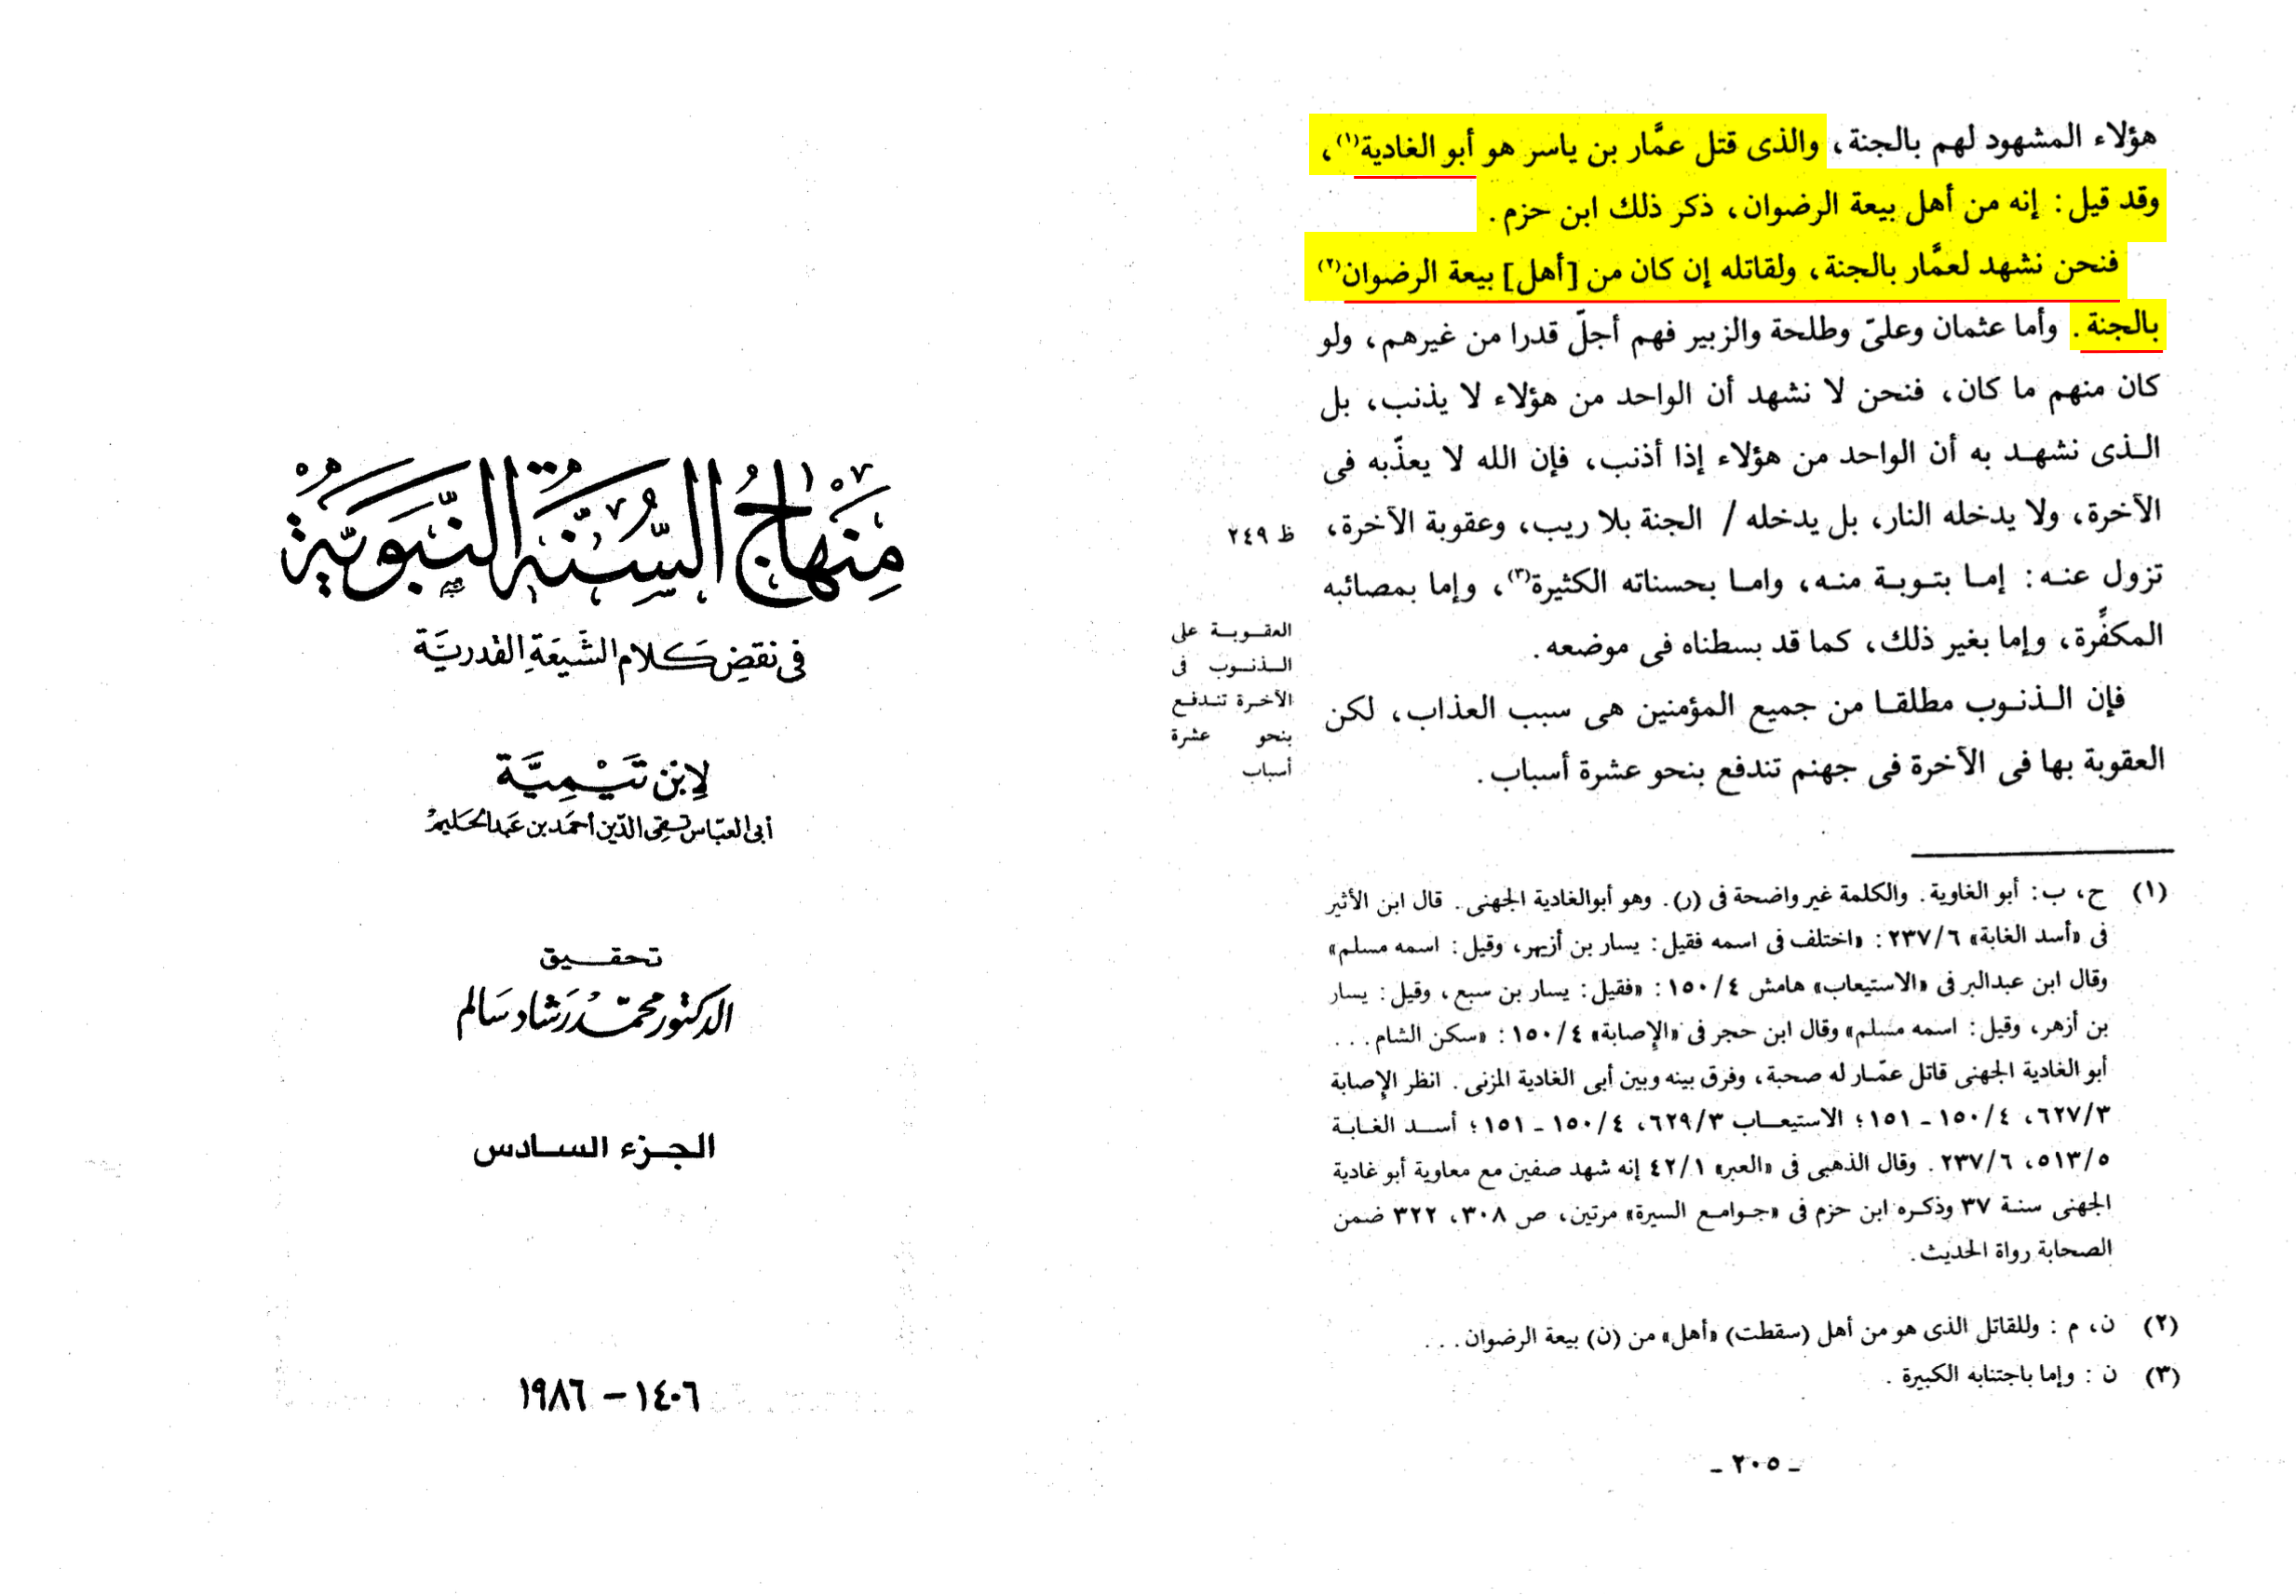 مِنهَاجُ السُّنَّة النَّبَوِيَّةُ
فى نقضِ كلام الشّيعَةِ القدريَّة
لابن تَيْمِيَّة
أبى العبّاس تقى الدّين أحمَد بن عَبد الحَليم
تحقـيـق
الدكتور محمّد رَشاد سَالم
الجـزء السـادس
١٤٠٦ – ١٩٨٦
هؤلاء المشهود لهم بالجنة، والذى قتل عمَّار بن ياسر هو أبو الغادية(١)،
وقد قيل : إنه من أهل بيعة الرضوان، ذكر ذلك ابن حزم .
فنحن نشهد لعمَّار بالجنة، ولقاتله إن كان من [أهل] بيعة الرضوان(٢)
بالجنة . وأما عثمان وعلىّ وطلحة والزبير فهم أجلّ قدرا من غيرهم، ولو
كان منهم ما كان، فنحن لا نشهد أن الواحد من هؤلاء لا يذنب، بل
الـذى نشهـد به أن الواحد من هؤلاء إذا أذنب، فإن الله لا يعذّبه فى
الآخرة، ولا يدخله النار، بل يدخله / الجنة بلا ريب، وعقوبة الآخرة،
ظ ٢٤٩
تزول عنـه : إمـا بتـوبـة منـه، وامـا بحسناته الكثيرة(٣)، وإما بمصائبه
المكفِّرة، وإما بغير ذلك، كما قد بسطناه فى موضعه .
فإن الـذنـوب مطلقـا من جميع المؤمنين هى سبب العذاب، لكن
العقوبة بها فى الآخرة فى جهنم تندفع بنحو عشرة أسباب .
العقـوبـة على
الـذنـوب فى
الآخـرة تنـدفـع
بنحو عشرة
أسباب
(١) ج، ب: أبو الغاوية. والكلمة غير واضحة فى (ر). وهو أبوالغادية الجهنى. قال ابن الأثير
فى «أسد الغابة» ٢٣٧/٦ : «اختلف فى اسمه فقيل: يسار بن أزيهر، وقيل: اسمه مسلم»
وقال ابن عبدالبر فى «الاستيعاب» هامش ١٥٠/٤ : «فقيل: يسار بن سبع، وقيل: يسار
بن أزهر، وقيل: اسمه مسلم» وقال ابن حجر فى «الإصابة» ١٥٠/٤ : «سكن الشام . . .
أبو الغادية الجهنى قاتل عمّـار له صحبة، وفرق بينه وبين أبى الغادية المزنى . انظر الإصابة
٦٢٧/٣، ١٥٠/٤ ـ ١٥١؛ الاستيعـاب ٦٢٩/٣، ١٥٠/٤ ـ ١٥١؛ أسـد الغـابـة
٥١٣/٥، ٢٣٧/٦ . وقال الذهبى فى «العبر» ٤٢/١ إنه شهد صفين مع معاوية أبو غادية
الجهنى سنـة ٣٧ وذكـره ابن حزم فى «جـوامـع السيرة» مرتين، ص ٣٠٨، ٣٢٢ ضمن
الصحابة رواة الحديث .
(٢) ن، م : وللقاتل الذى هو من أهل (سقطت) «أهل» من (ن) بيعة الرضوان . . .
(٣) ن : وإما باجتنابه الكبيرة .
ـ ٢٠٥ ـ